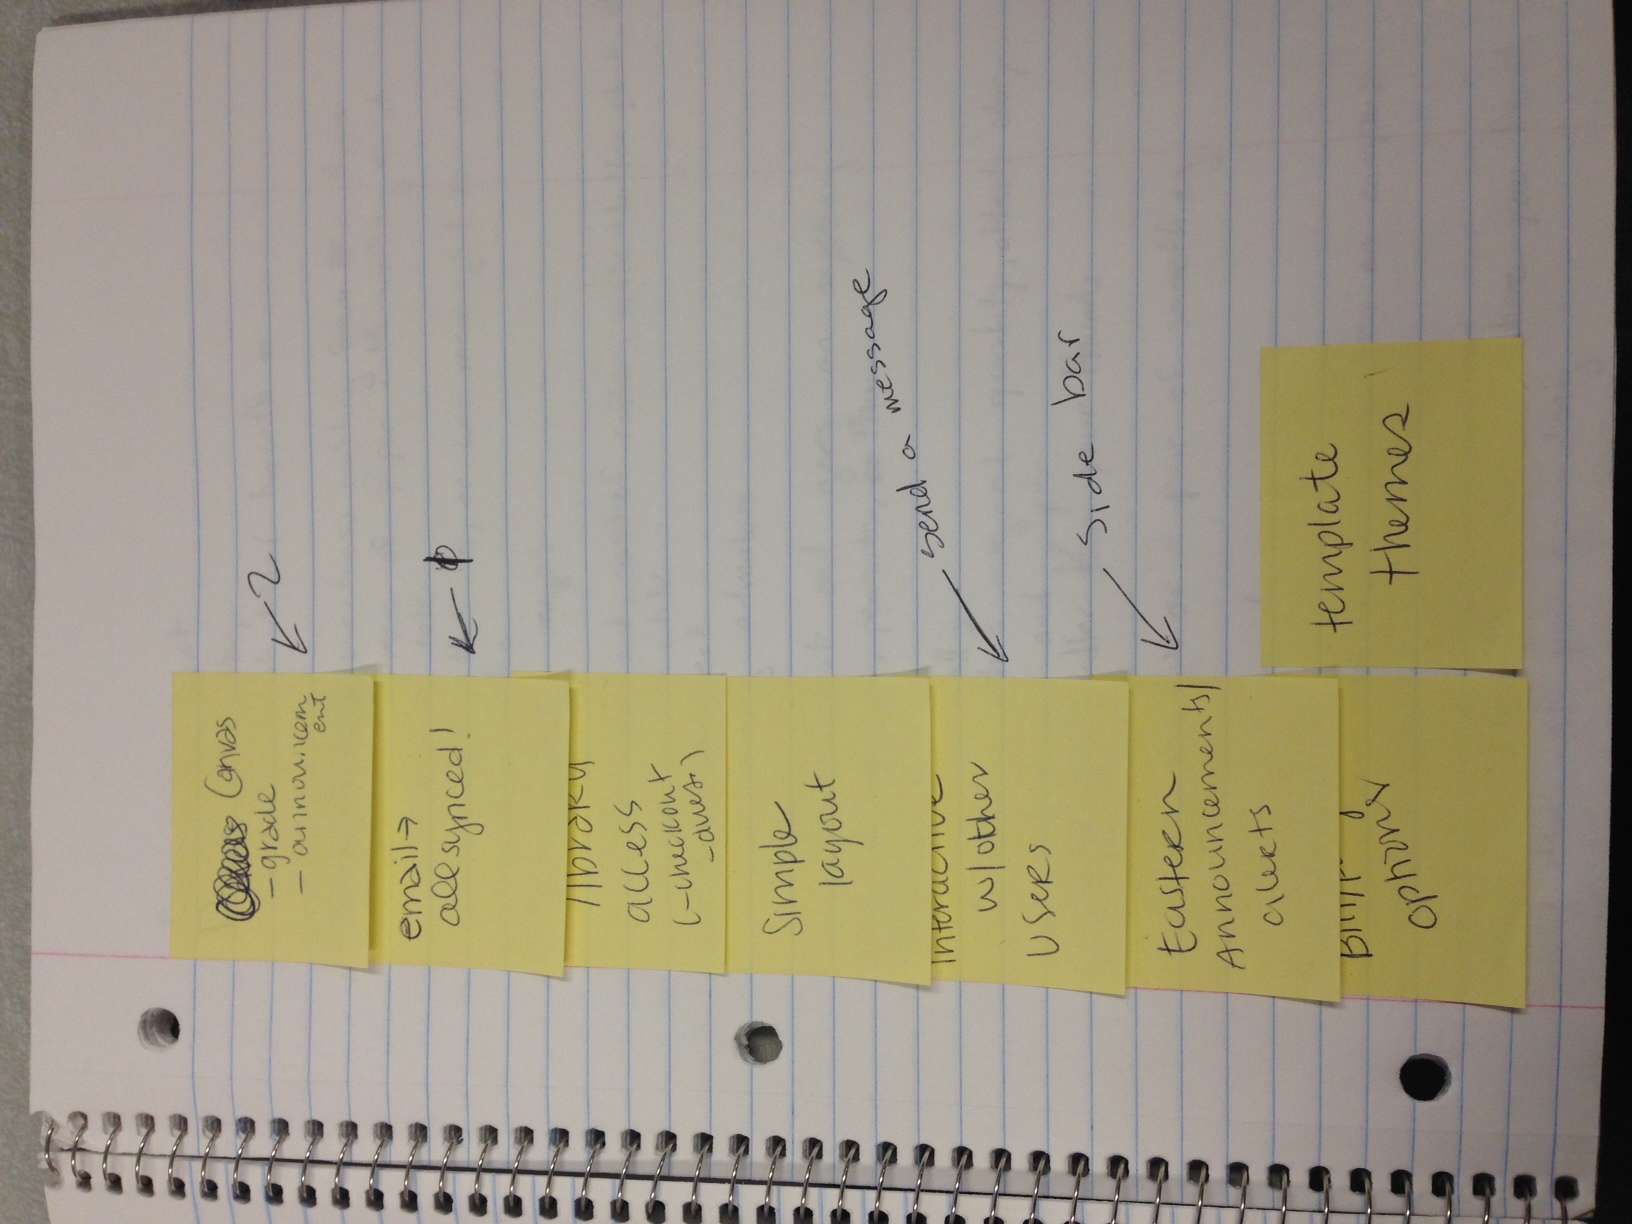 Canvas
- grade
- announcem
ent
2
email →
all synced!
1
library
access
(-checkout
-dues)
Simple
layout
send a message
Interactive
w/other
Users
Side bar
Eastern
Announcements/
alerts
Bill/pay
options
template
themes